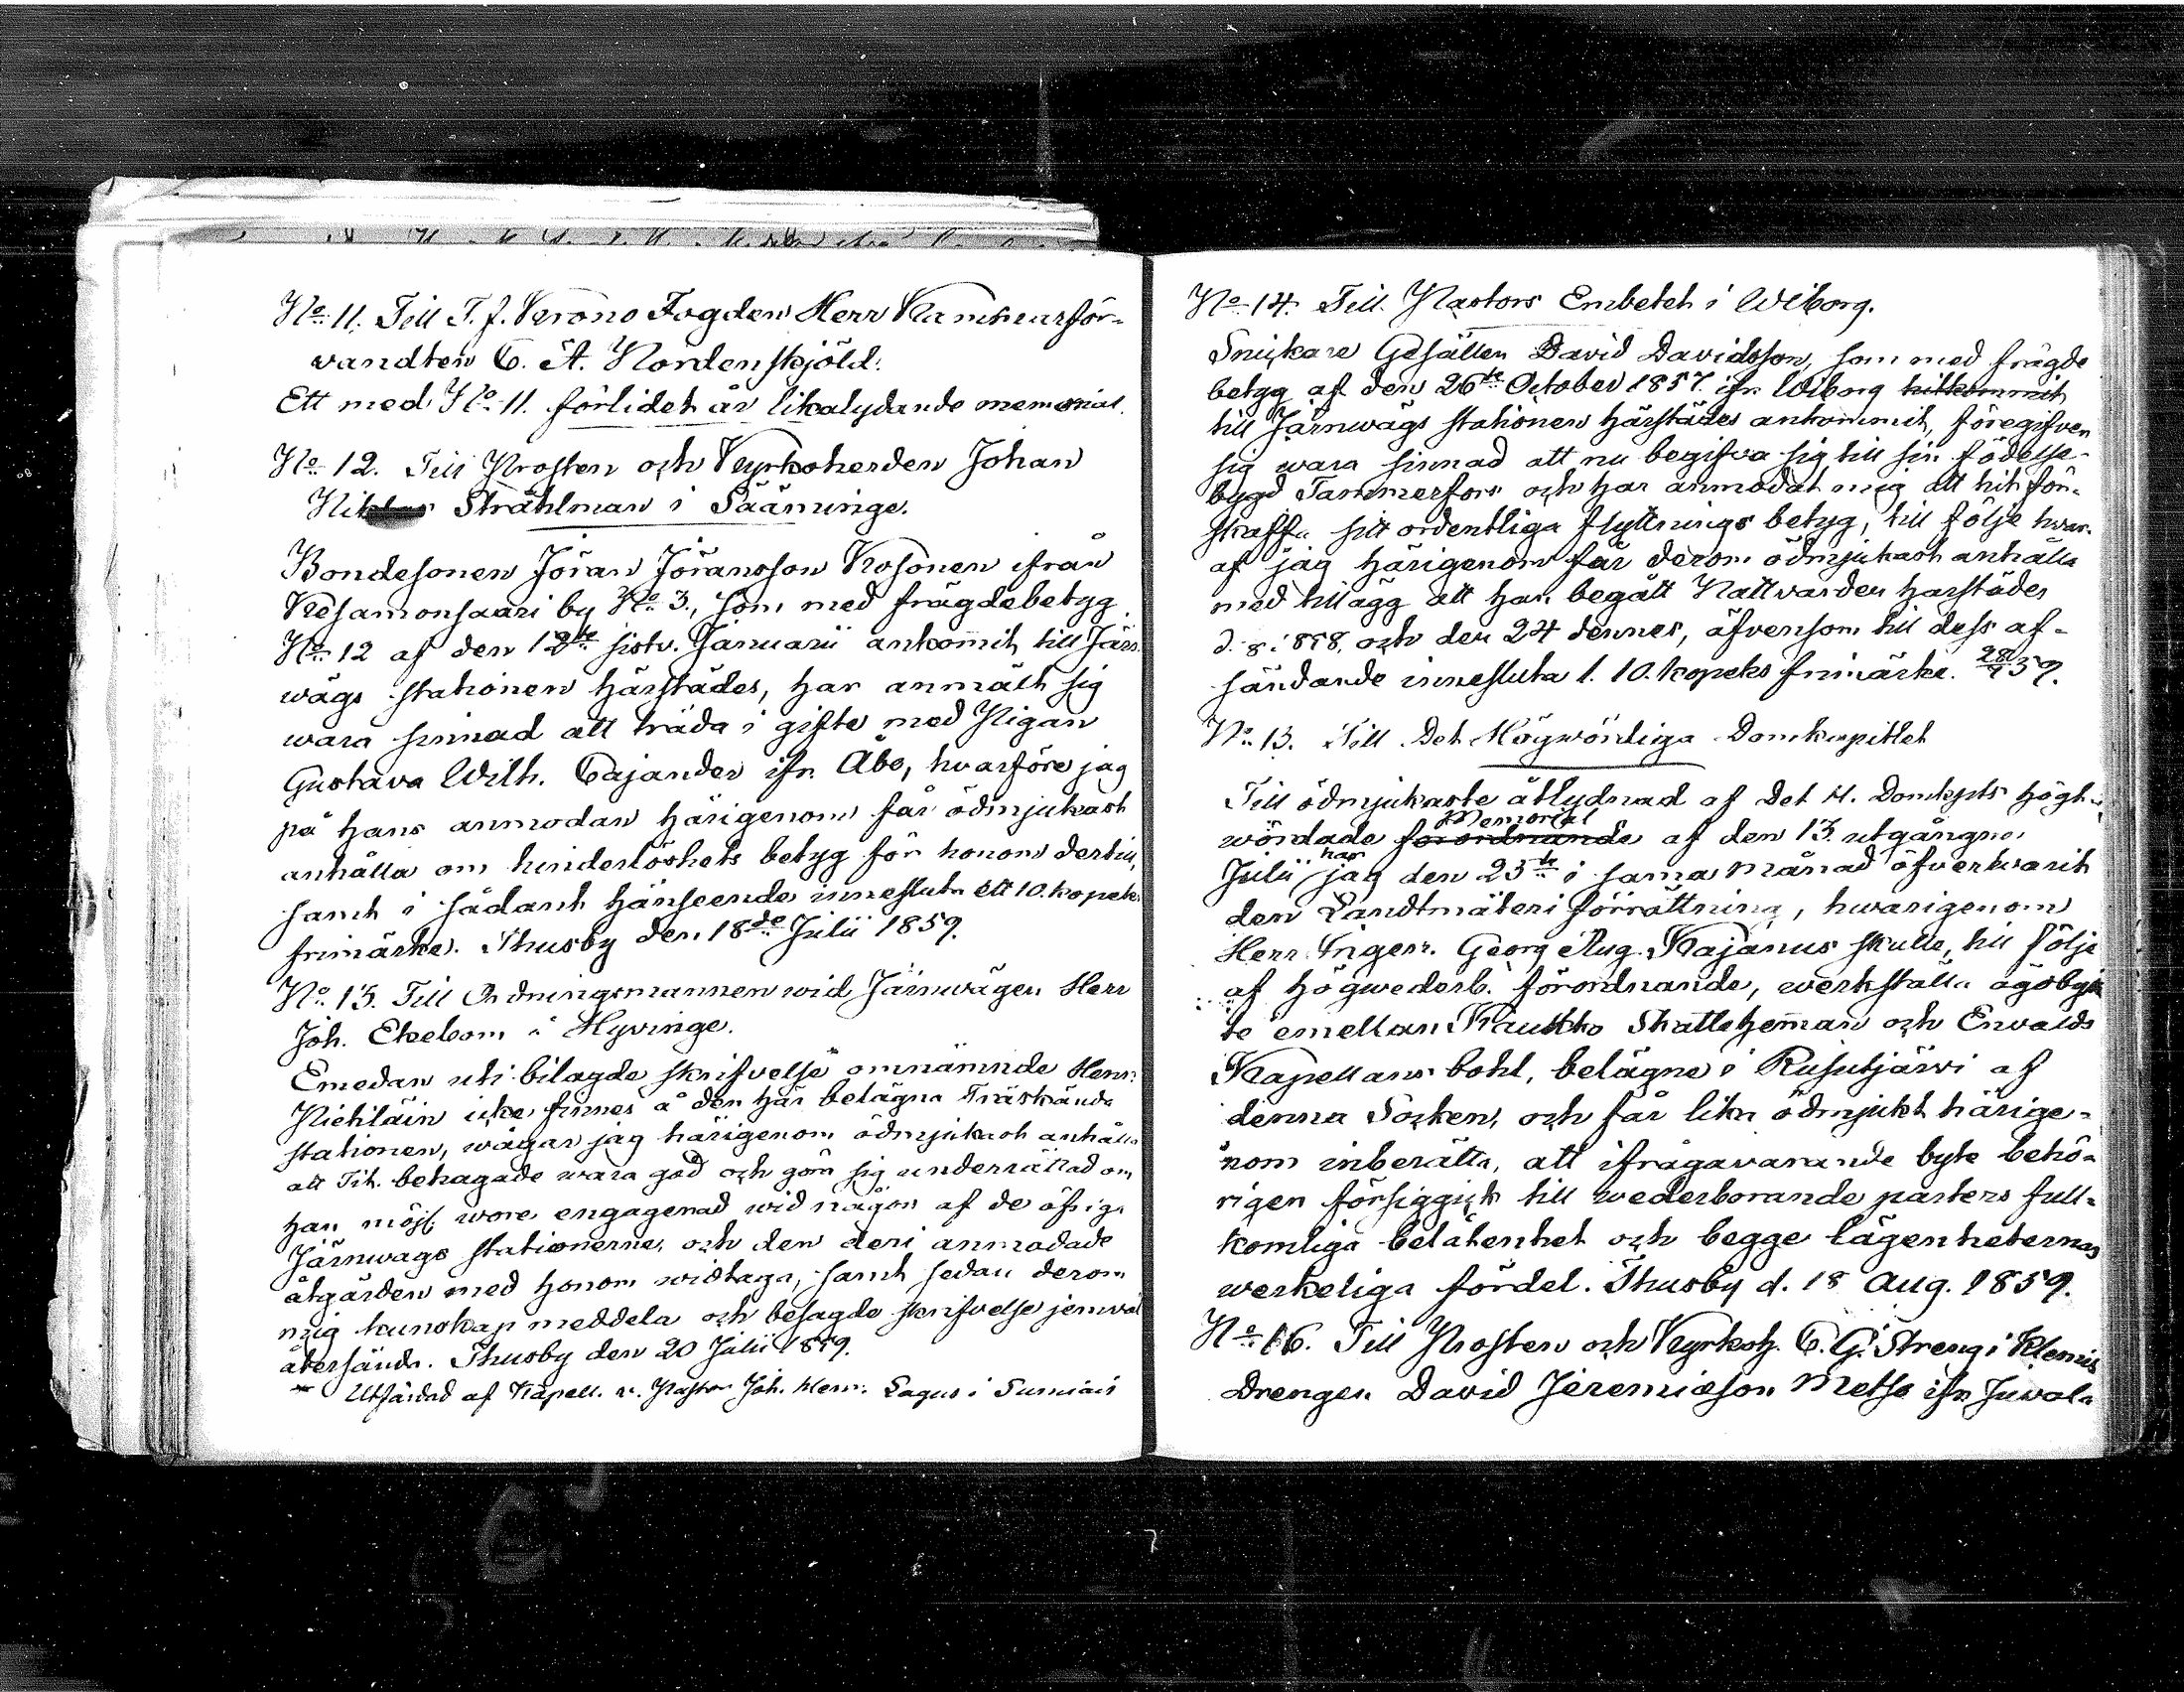 No 11. Till T. f. Krono Fogden Herr Kammarför-
vandten C. A. Nordenskjöld.
Ett med No 11. förlidet år likalydande memorial.
No 12. Till Prosten och Kyrkoherden Johan
Stråhlman i Sääminge.
Bondesonen Jöran Jöransson Kosonen ifrån
Kesamonsaari by No 3., som med frägdebetyg
No 12 af den 12te sistv. Januarii ankommit till Järn
wägs stationen härstädes, har anmält sig
wara sinnad att träda i gifte med Pigan
Gustava Wilh. Cajander ifr. Åbo, hvarföre jag
på hans anmodan härigenom får ödmjukast
anhålla om hinderlöshets betyg för honom dertill,
samt i sådant hänseende innesluta ett 10. kopeks
frimärke. Thusby den 18de Julii 1859.
No 13. Till Ordningsmannen wid Järnwägen Herr
Joh. Ekebom i Hyvinge.
Emedan uti bilagde skrifvelse omnämnde Henr.
icke finnes å den här belägna Träskända
stationen, wågar jag härigenom ödmjukast anhålla
att Tit. behagade wara god och göra sig underrättad om
han möjl. wore engagerad wid någon af de öfriga
Järnwägs stationerne, och den deri anmodade
åtgärden med honom widtaga, samt sedan derom
mig kunskap meddela och besagde skrifvelse jemwäl
återsända. Thusby den 20 Julii 1859.
Utfärdad af Kapell. v. Pastor Joh. Herm. Lagus i Sumiais
No 14. Till Pastors Embetet i Wiborg.
Snickare Gesällen David Davidsson, som med frägde
betyg af den 26te October 1857. ifr. Wiborg hitkommit
till Järnwägs stationen härstädes ankommit, föregifven
sig wara sinnad att nu begifva sig till sin födelse-
bygd Tammerfors och har anmodat mig att hit för-
skaffa sitt ordentliga flyttnings betyg, till följe hvar-
af jag härigenom får derom ödmjukast anhålla
med tillägg att han begått Nattvarden härstädes
d. 8. 1858. och den 24 dennes, äfvensom till dess af-
sändande innesluta 1. 10. kopeks frimärke. 28/7 59.
No 15. Till Det Högwördiga Domkapitlet
Till ödmjukaste åtlydnad af Det H. Domkpts högt-
Memorial
wördade förordnande af den 13. utgångne
har
Julii jag den 23te i samma månad öfverwarit
den Landtmäteri förrättning, hwarigenom
Herr Ingen. Georg Aug. Kajanus skulle, till följe
af högwederb. förordnande, werkställa ägoby-
te emellan Kaukko Skattehemman och Enwalds
Kapellans bohl, belägne i Rusutjärwi af
denna Socken, och får lika ödmjukt härige-
nom inberätta, att ifrågavarande byte behö-
rigen försiggick till wederborande parters full-
komliga belåtenhet och begge lägenheternas
werkeliga fördel. Thusby d. 18 Aug. 1859.
No 16. Till Prosten och Kyrkoh. C. G. Streng i Klemis
Drengen David Jeremiæson Metse ifr. Juvala